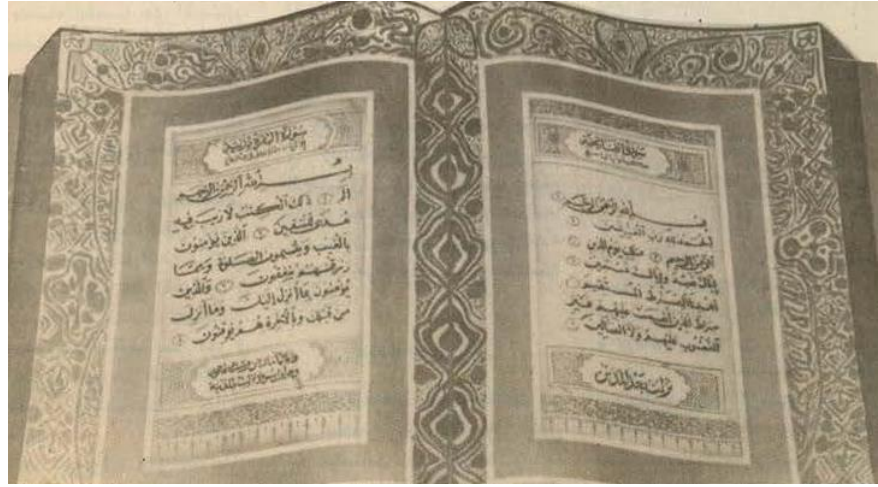 سورة الفاتحة
بسم الله الرحمن الرحيم
الحمد لله رب العلمين
الرحمن الرحيم ملك يوم الدين
إياك نعبد وإياك نستعين
اهدنا الصرط المستقيم
صرط الذين أنعمت عليهم غير
المغضوب عليهم ولا الضالين
نزلت بعد المدثر
سورة البقرة مدنية
بسم الله الرحمن الرحيم
الم ذلك الكتب لا ريب فيه
هدى للمتقين الذين يؤمنون
بالغيب ويقيمون الصلوة ومما
رزقنهم ينفقون والذين
يؤمنون بما أنزل إليك وما أنزل
من قبلك وبالآخرة هم يوقنون